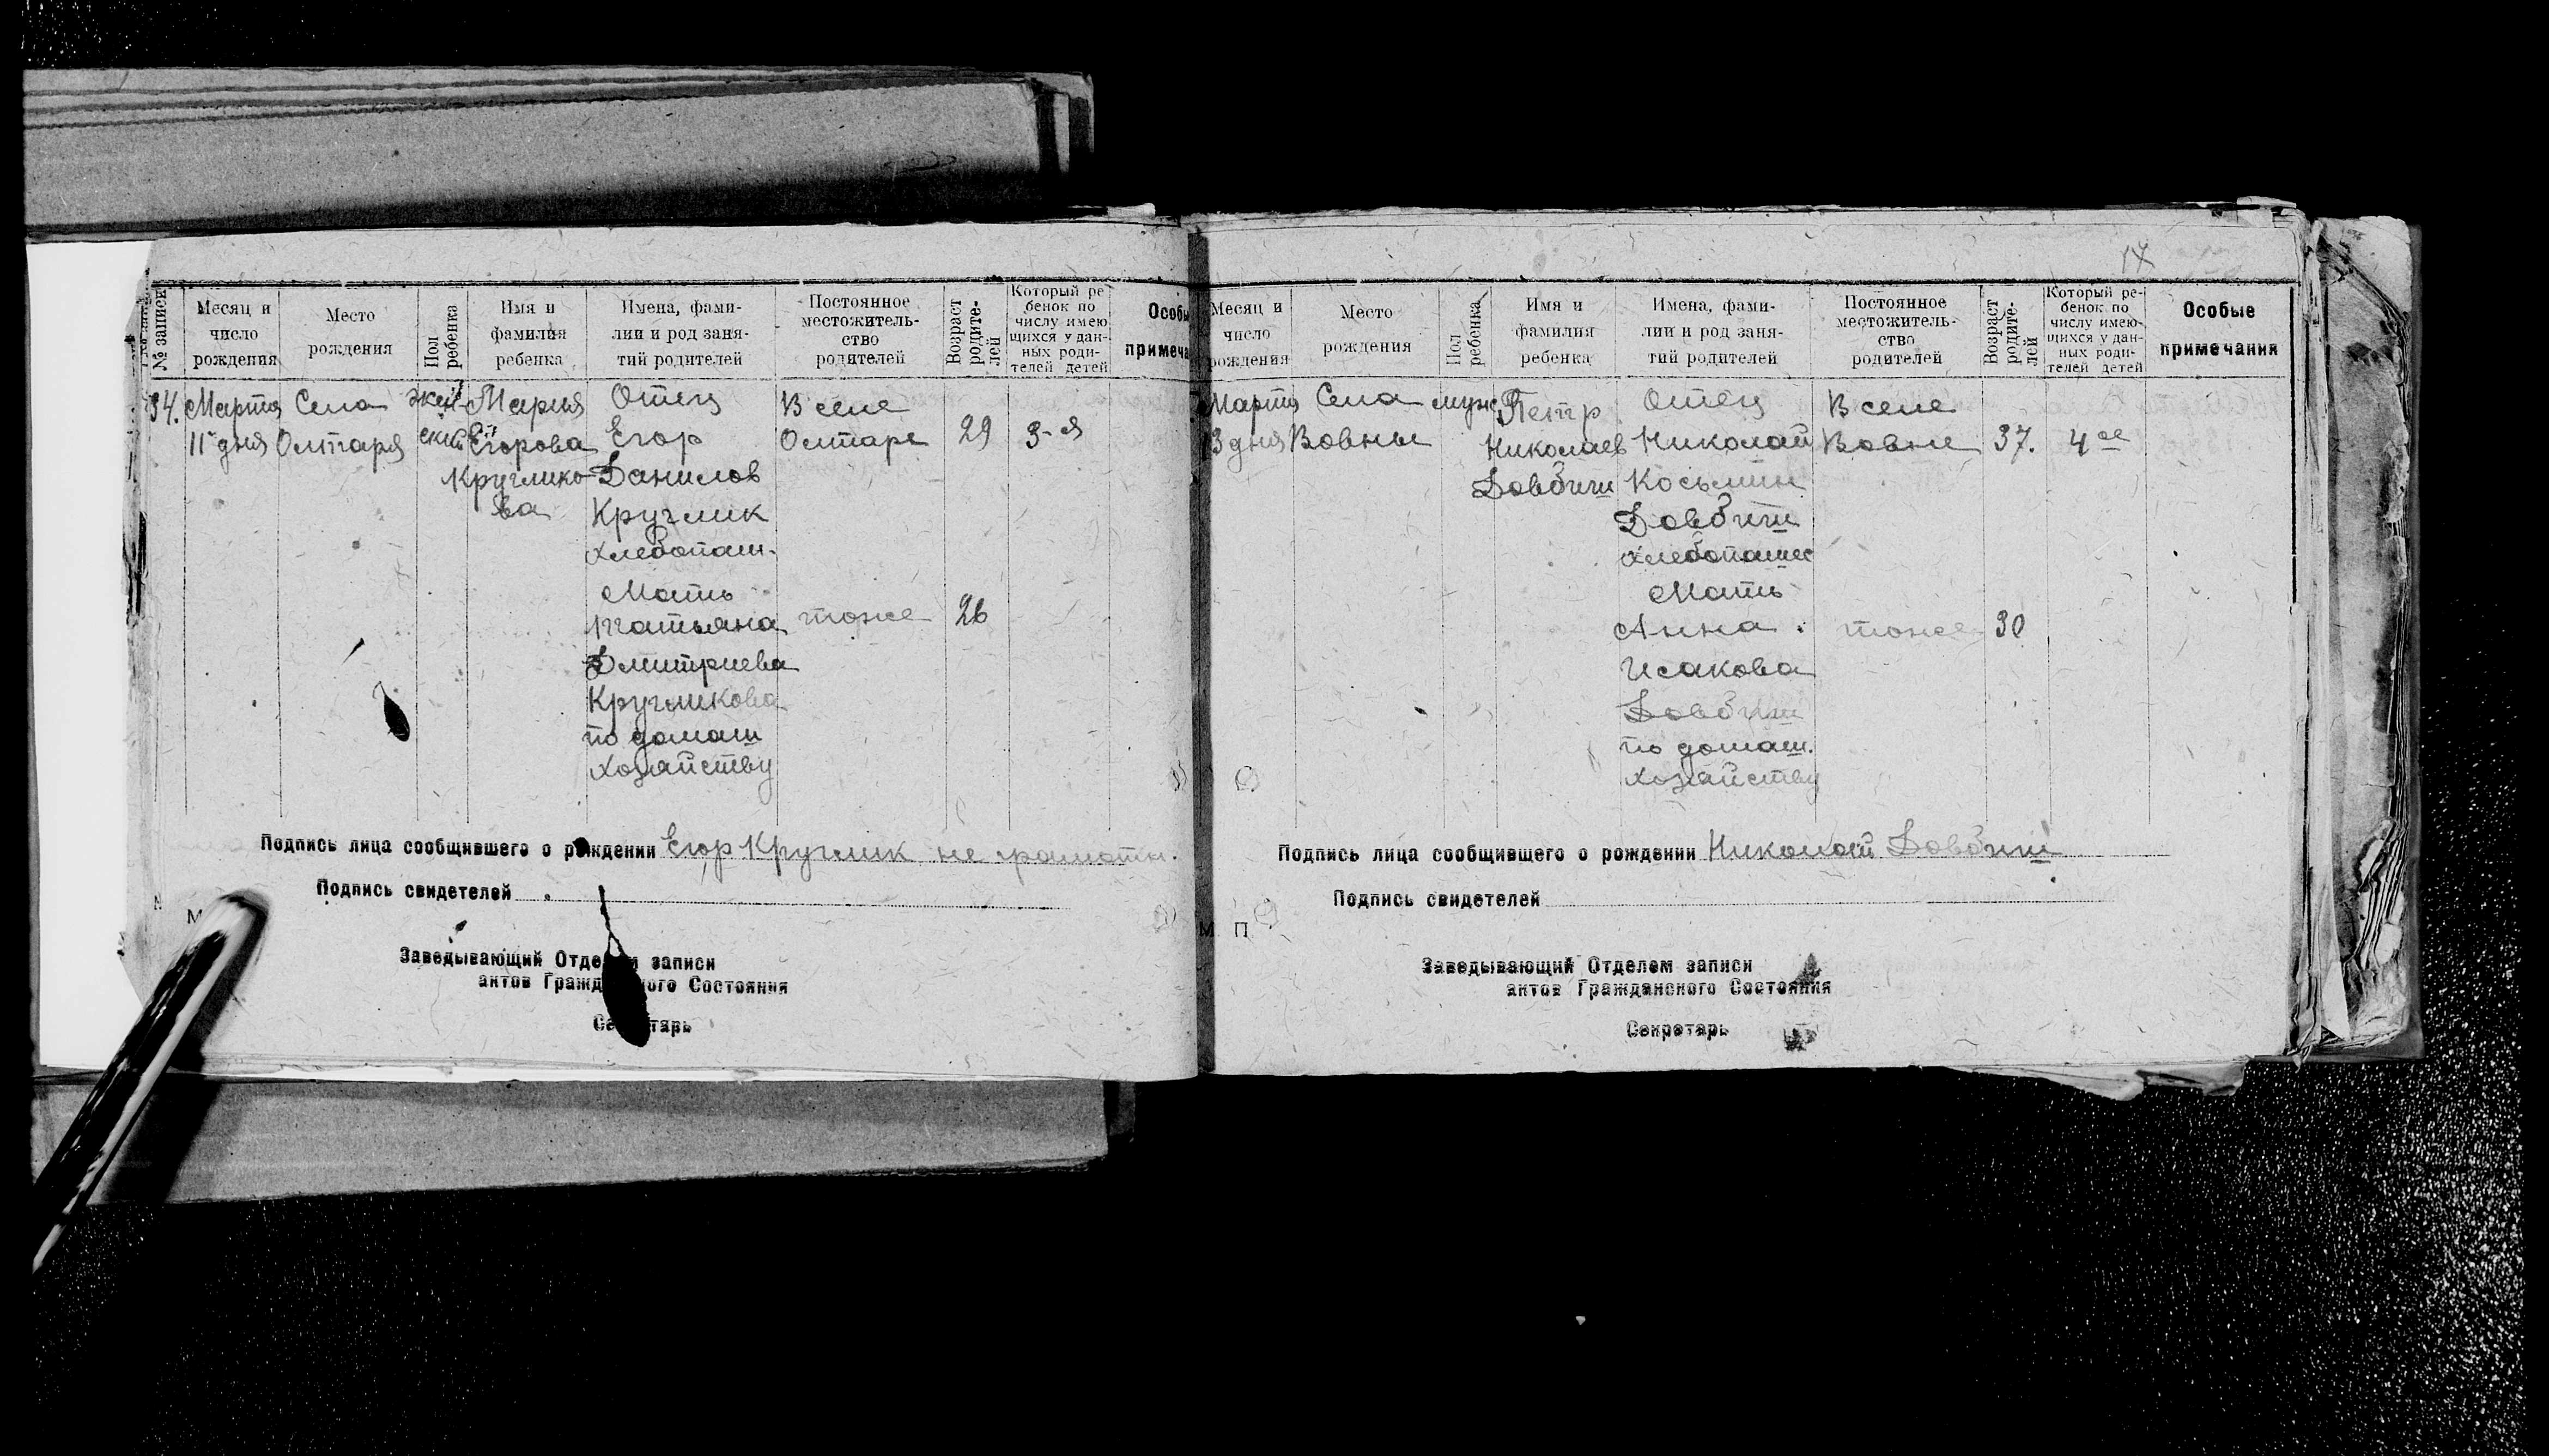 № записи
Месяц и число рождения
Место рождения
Пол ребенка
Имя и фамилия ребенка
Имена, фамилии и род занятий родителей
Постоянное местожительство родителей
Возраст родителей
Который ребенок по числу имеющихся у данных родителей детей
Особы
примеча
34.
Марта
11 дня
Села
Олтаря
женский
Мария
Егорова
Круглико-
ва
Отец
Егор
Данилов
Круглик
хлебопаш.
Мать
Татьяна
Дмитриева
Кругликова
по домаш
хозяйству
В селе
Олтаре
тоже
29
26
3-я
Подпись лица сообщившего о рождении Егор Круглик не грамотн.
Подпись свидетелей
М
Заведывающий Отделом записи
актов Гражданского Состояния
Секретарь
17
Месяц и число рождения
Место рождения
Пол ребенка
Имя и фамилия ребенка
Имена, фамилии и род занятий родителей
Постоянное местожительство родителей
Возраст родителей
Который ребенок по числу имеющихся у данных родителей детей
Особые
примечания
Марта
3 дня
Села
Вовны
муж
Петр
Николаев
Довбиш
Отец
Николай
Косьмин
Довбиш
хлебопашес
Мать
Анна
Исакова
Довбиш
по домаш.
хозяйству
В селе
Вовне
тоже
37.
30
4ое
Подпись лица сообщившего о рождении Николай Довбиш
Подпись свидетелей
М П
Заведывающий Отделом записи
актов Гражданского Состояния
Секретарь